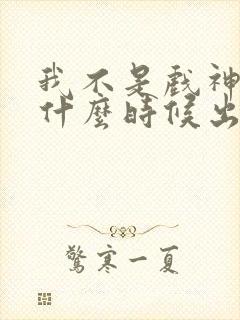 我不是戲神
什麼時候出
驚寒一夏